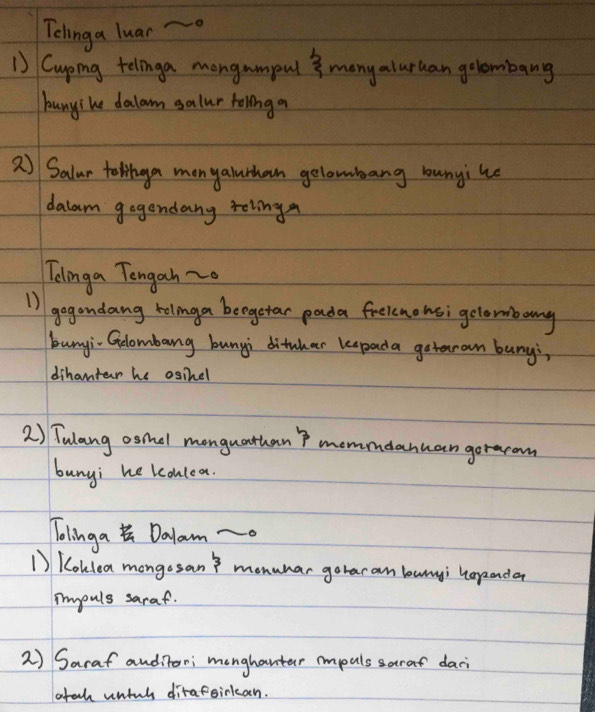 Telinga luar ~o
1) Cuping telinga mengumpul & menyalurkan gelombang
bunyi ke dalam salur telinga
2) Salur telinga menyalurkan gelombang bunyi ke
dalam gegendang telinga
Telinga Tengah ~o
1) gegendang telinga bergetar pada frekuensi gelombang
bunyi. Gelombang bunyi ditukar kepada getaran bunyi,
dihantar ke osikel
2) Tulang osikel menguatkan & memindahkan getaran
bunyi ke koklea.
Telinga Dalam ~o
1) Koklea mengesan & menukar getaran bunyi kepada
impuls saraf.
2) Saraf auditori menghantar impuls saraf dari
otak untuk ditafsirkan.